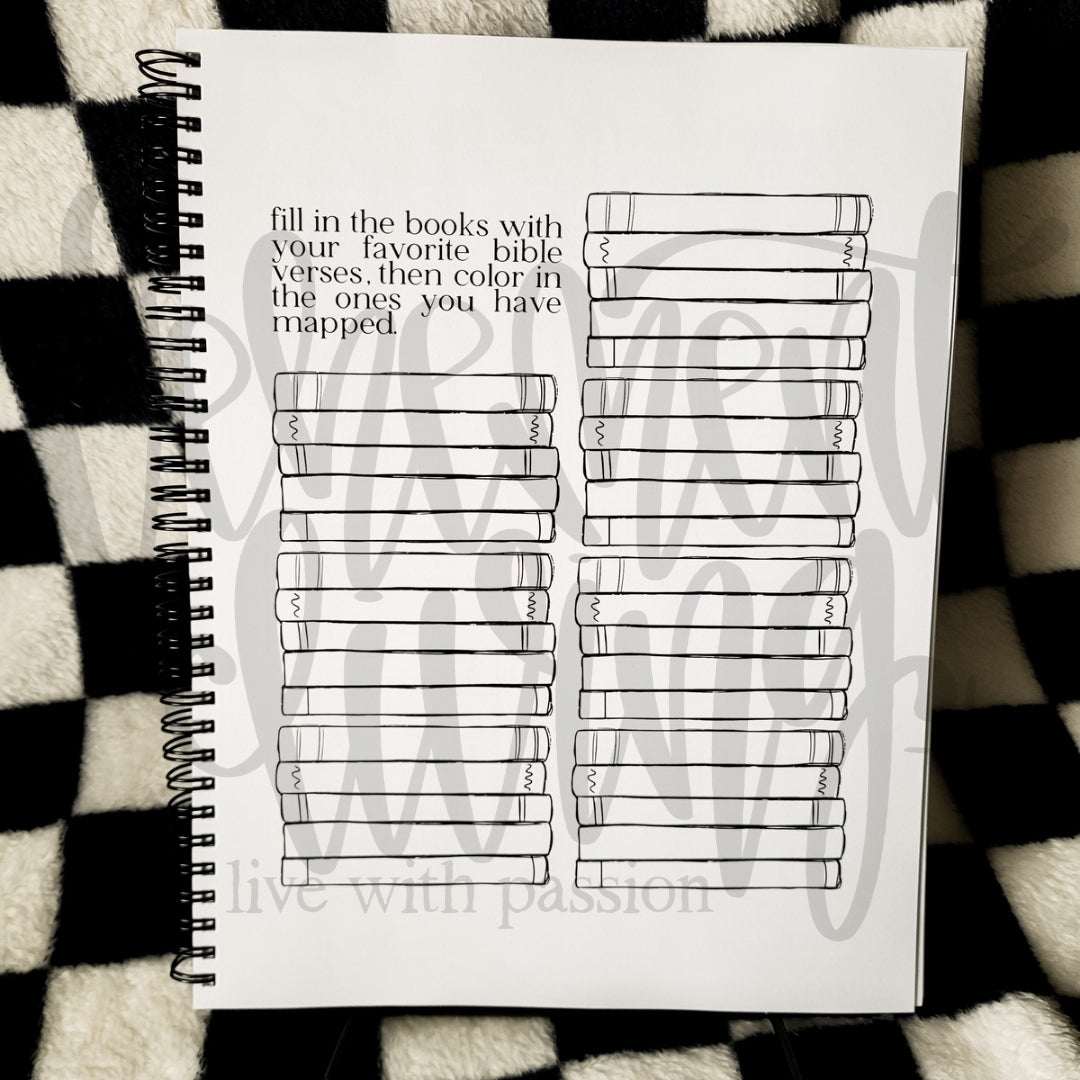 fill in the books with
your favorite bible
verses, then color in
the ones you have
mapped.
Vehement
Living
live with passion